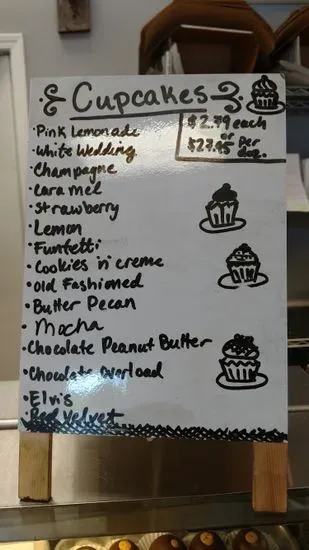 Cupcakes
$2.79 each
or
$27.95 per
doz.
• Pink Lemonade
• White Wedding
• Champagne
• Caramel
• Strawberry
• Lemon
• Funfetti
• Cookies 'n' creme
• Old Fashioned
• Butter Pecan
• Mocha
• Chocolate Peanut Butter
• Chocolate Overload
• Elvis
• Red Velvet